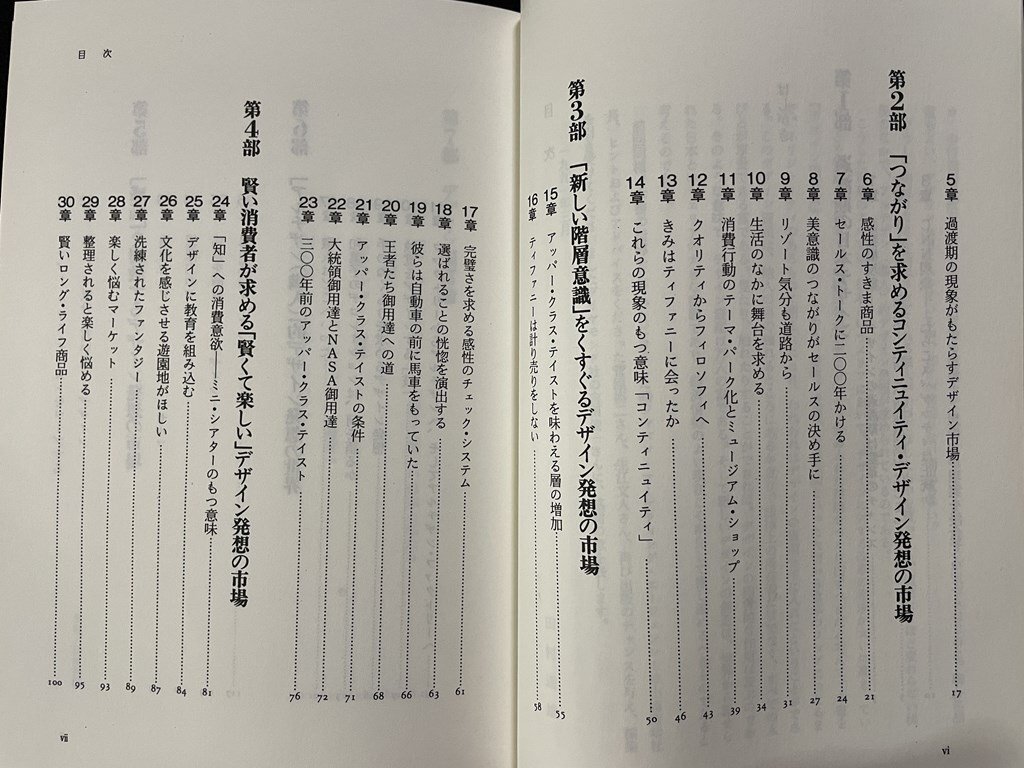 5章 過渡期の現象がもたらすデザイン市場 17
第2部 「つながり」を求めるコンティニュイティ・デザイン発想の市場
6章 感性のすきま商品 21
7章 セールス・トークに二〇〇年かける 24
8章 美意識のつながりがセールスの決め手に 27
9章 リゾート気分も道路から 31
10章 生活のなかに舞台を求める 34
11章 消費行動のテーマ・パーク化とミュージアム・ショップ 39
12章 クオリティからフィロソフィへ 43
13章 きみはティファニーに会ったか 46
14章 これらの現象のもつ意味「コンティニュイティ」 50
第3部 「新しい階層意識」をくすぐるデザイン発想の市場
15章 アッパー・クラス・テイストを味わえる層の増加 55
16章 ティファニーは計り売りをしない 58
vi
目次
17章 完璧さを求める感性のチェック・システム 61
18章 選ばれることの恍惚を演出する 63
19章 彼らは自動車の前に馬車をもっていた 66
20章 王者たち御用達への道 68
21章 アッパー・クラス・テイストの条件 71
22章 大統領御用達とNASA御用達 72
23章 三〇〇年前のアッパー・クラス・テイスト 76
第4部 賢い消費者が求める「賢くて楽しい」デザイン発想の市場
24章 「知」への消費意欲――ミニ・シアターのもつ意味 81
25章 デザインに教育を組み込む 84
26章 文化を感じさせる遊園地がほしい 87
27章 洗練されたファンタジー 89
28章 楽しく悩むマーケット 93
29章 整理されると楽しく悩める 95
30章 賢いロング・ライフ商品 100
vii